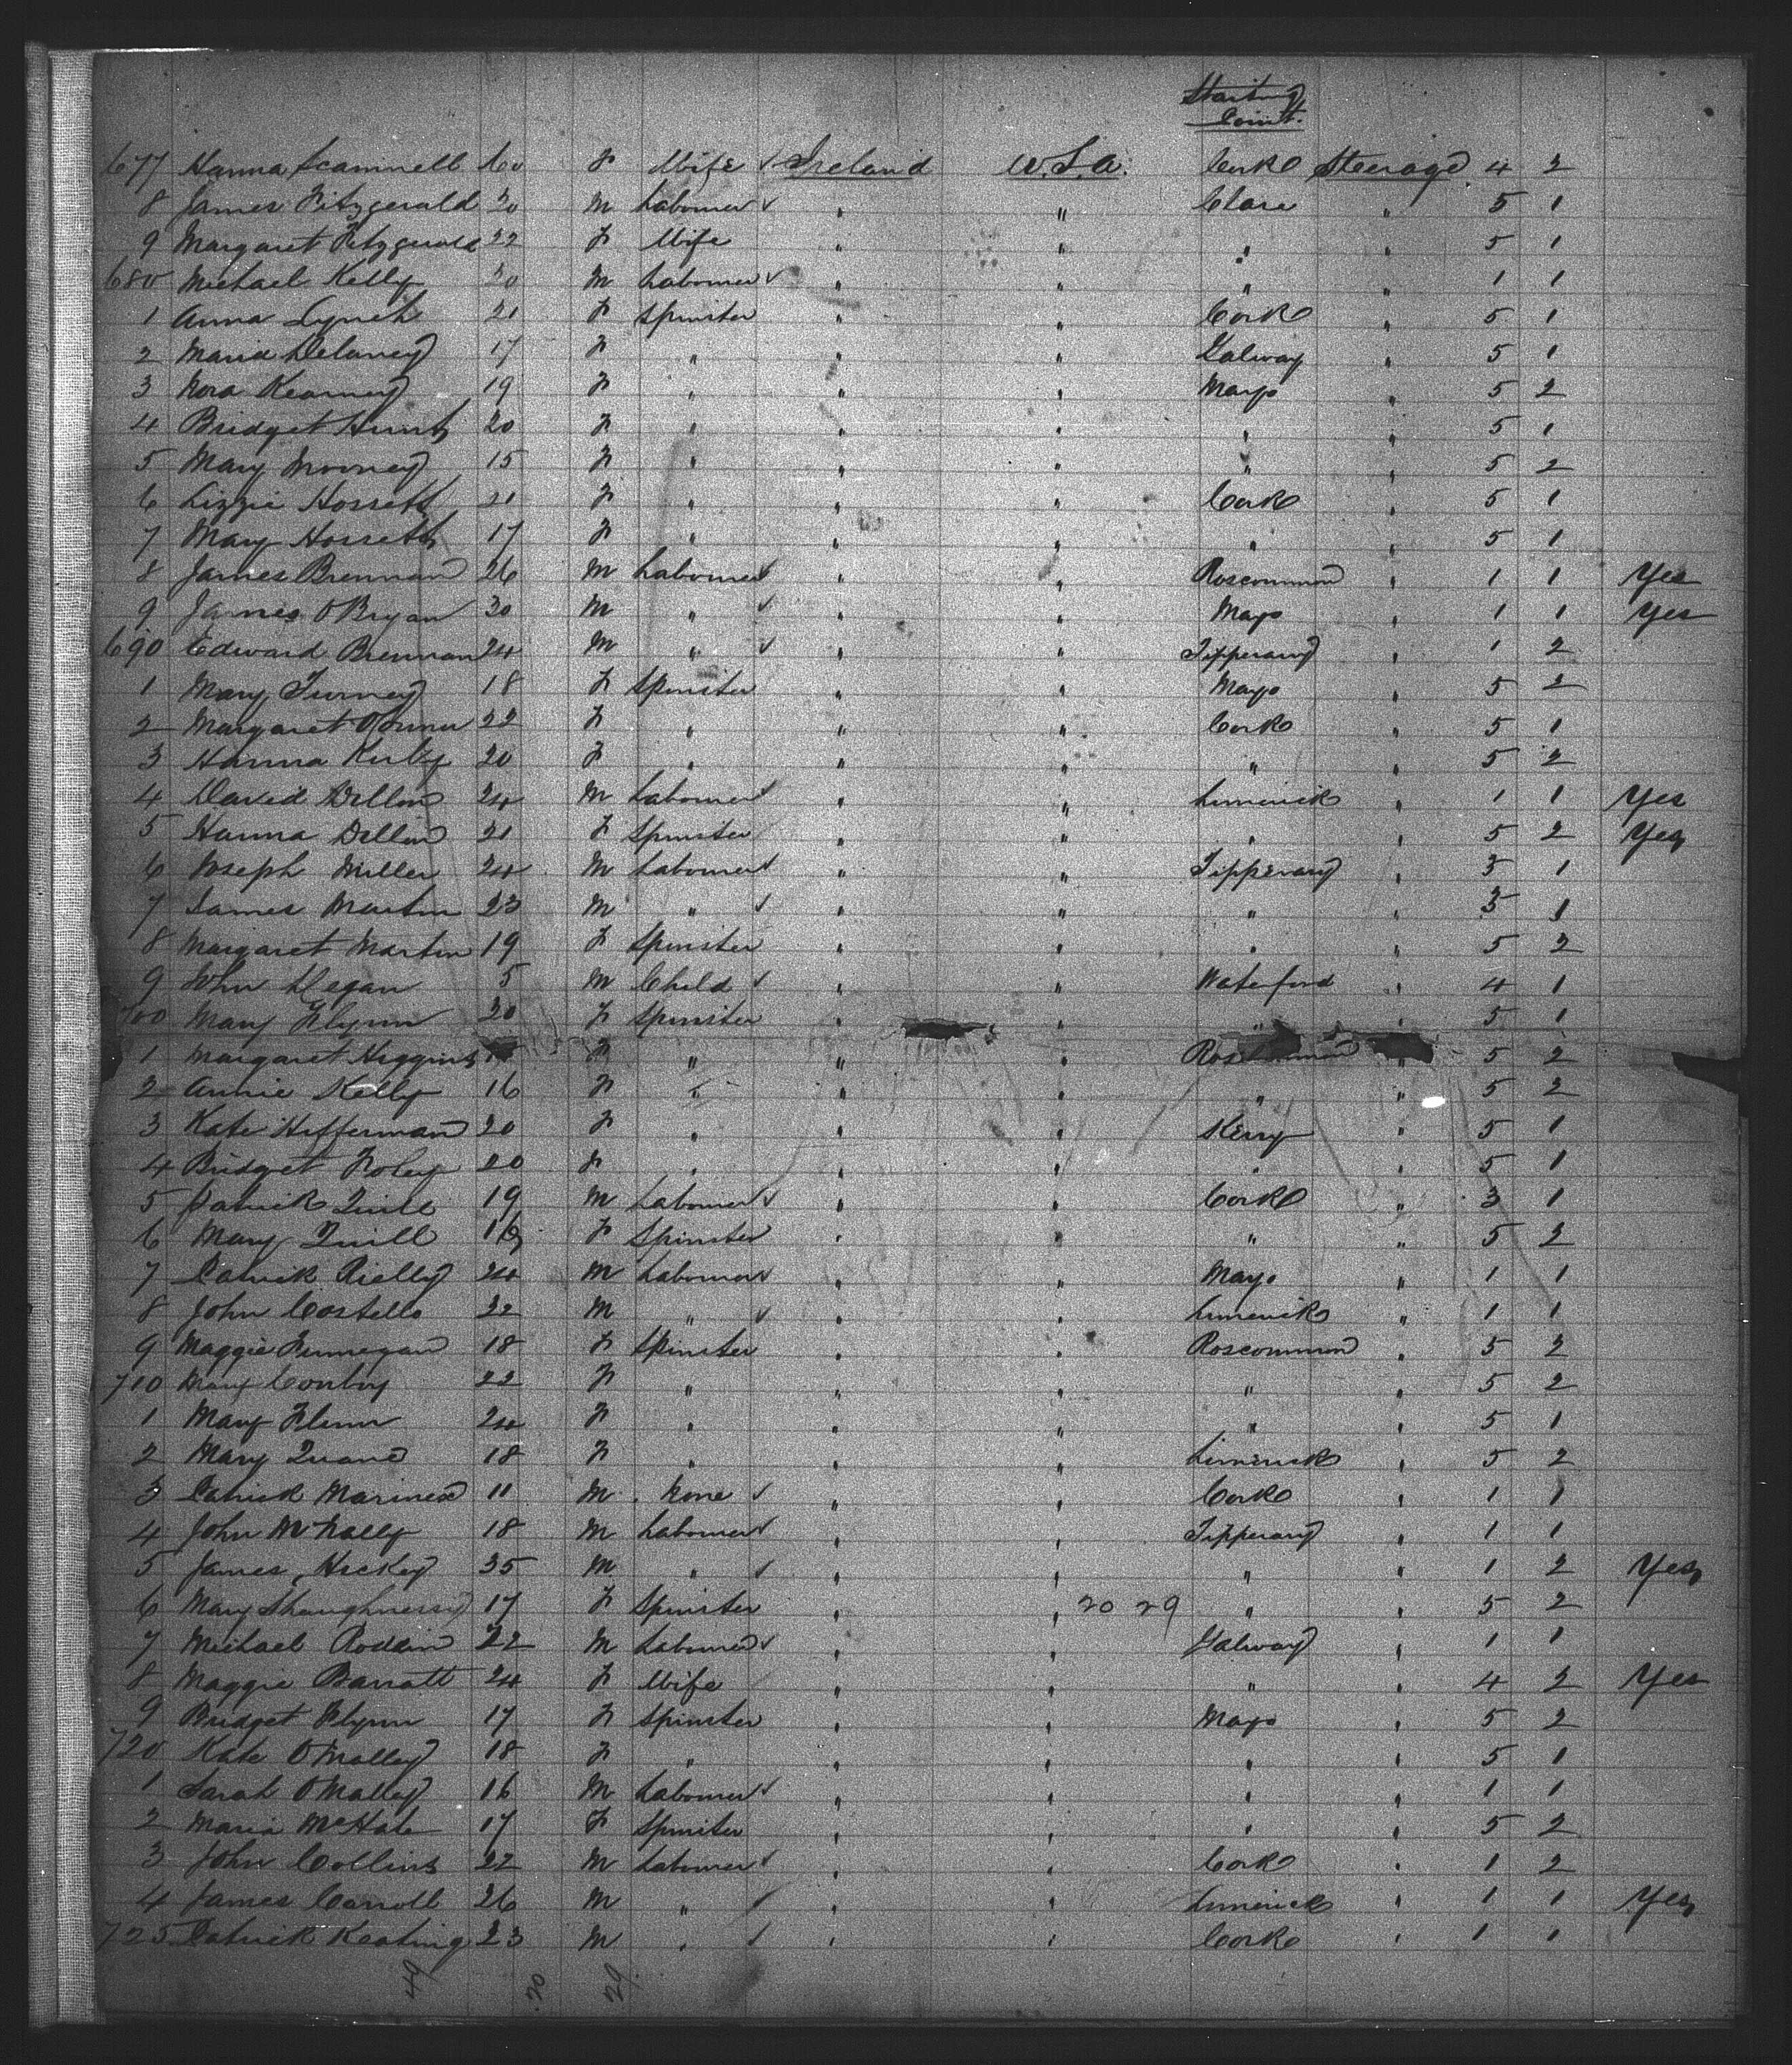 Starting
Point.
677 Hanna Scannell 60 F Wife ✓ Ireland U.S.A. Cork Steerage 4 2
8 James Fitzgerald 30 M Labourer ✓ " " Clare " 5 1
9 Margaret Fitzgerald 22 F Wife " " " " 5 1
680 Michael Kelly 20 M Labourer ✓ " " " " 1 1
1 Anna Lynch 21 F Spinster " " Cork " 5 1
2 Maria Delaney 17 F " " " Galway " 5 1
3 Nora Kearney 19 F " " " Mayo " 5 2
4 Bridget Hunt 20 F " " " " " 5 1
5 Mary Mooney 15 F " " " " " 5 2
6 Lizzie Hossett 21 F " " " Cork " 5 1
7 Mary Hossett 17 F " " " " " 5 1
8 James Brennan 26 M Labourer ✓ " " Roscommon " 1 1 Yes
9 James O'Bryan 30 M " ✓ " " Mayo " 1 1 Yes
690 Edward Brennan 24 M " ✓ " " Tipperary " 1 2
1 Mary Turney 18 F Spinster " " Mayo " 5 2
2 Margaret 22 F " " " Cork " 5 1
3 Hanna Kirby 20 F " " " " " 5 2
4 David Dillon 24 M Labourer ✓ " " Limerick " 1 1 Yes
5 Hanna Dillon 21 F Spinster " " " " 5 2 Yes
6 Joseph Miller 24 M Labourer ✓ " " Tipperary " 3 1
7 James Martin 23 M " ✓ " " " " 3 1
8 Margaret Martin 19 F Spinster " " " " 5 2
9 John Degan 5 M Child ✓ " " Waterford " 4 1
700 Mary Flynn 20 F Spinster " " " " 5 1
1 Margaret Higgins F " " " Roscommon " 5 2
2 Annie Kelly 16 F " " " " " 5 2
3 Kate Hefferman 20 F " " " Kerry " 5 1
4 Bridget Foley 20 F " " " " " 5 1
5 Patrick Quill 19 M Labourer ✓ " " Cork " 3 1
6 Mary Quill 16 F Spinster " " " " 5 2
7 Patrick Rielly 24 M Labourer ✓ " " Mayo " 1 1
8 John Costello 22 M " ✓ " " Limerick " 1 1
9 Maggie Finnegan 18 F Spinster " " Roscommon " 5 2
710 Mary Conboy 22 F " " " " " 5 2
1 Mary Flynn 24 F " " " " " 5 1
2 Mary Quane 18 F " " " Limerick " 5 2
3 Patrick 11 M None ✓ " " Cork " 1 1
4 John McNally 18 M Labourer ✓ " " Tipperary " 1 1
5 James Hickey 35 M " ✓ " " " " 1 2 Yes
6 Mary Shaughnessy 17 F Spinster " " 20 29 " " 5 2
7 Michael Roddin 22 M Labourer ✓ " " Galway " 1 1
8 Maggie Barratt 24 F Wife " " " " 4 2 Yes
9 Bridget Flynn 17 F Spinster " " Mayo " 5 2
720 Kate O'Malley 18 F " " " " " 5 1
1 Sarah O'Malley 16 M Labourer ✓ " " " " 1 1
2 Maria McHale 17 F Spinster " " " " 5 2
3 John Collins 22 M Labourer ✓ " " Cork " 1 2
4 James Carroll 26 M " ✓ " " Limerick " 1 1 Yes
725 Patrick Keating 23 M " ✓ " " Cork " 1 1